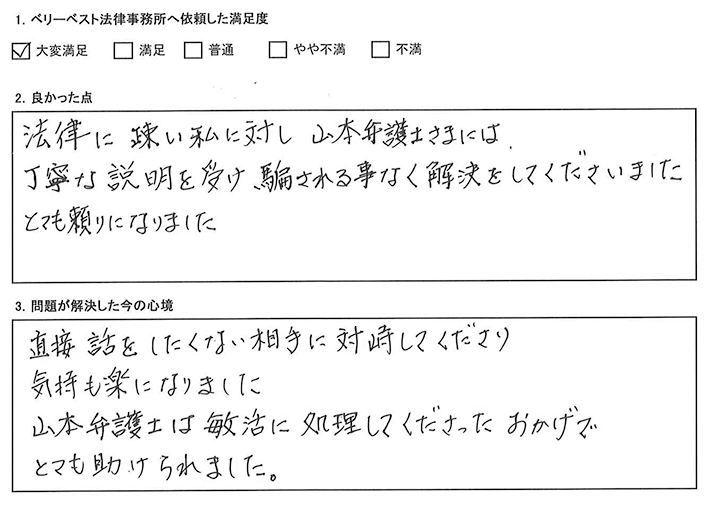 1. ベリーベスト法律事務所へ依頼した満足度
☑ 大変満足 □ 満足 □ 普通 □ やや不満 □ 不満
2. 良かった点
法律に疎い私に対し 山本弁護士さまには、
丁寧な説明を受け、騙される事なく解決をしてくださいました
とても頼りになりました
3. 問題が解決した今の心境
直接話をしたくない相手に対峙してくださり
気持も楽になりました
山本弁護士は敏活に処理してくださった おかげで
とても助けられました。